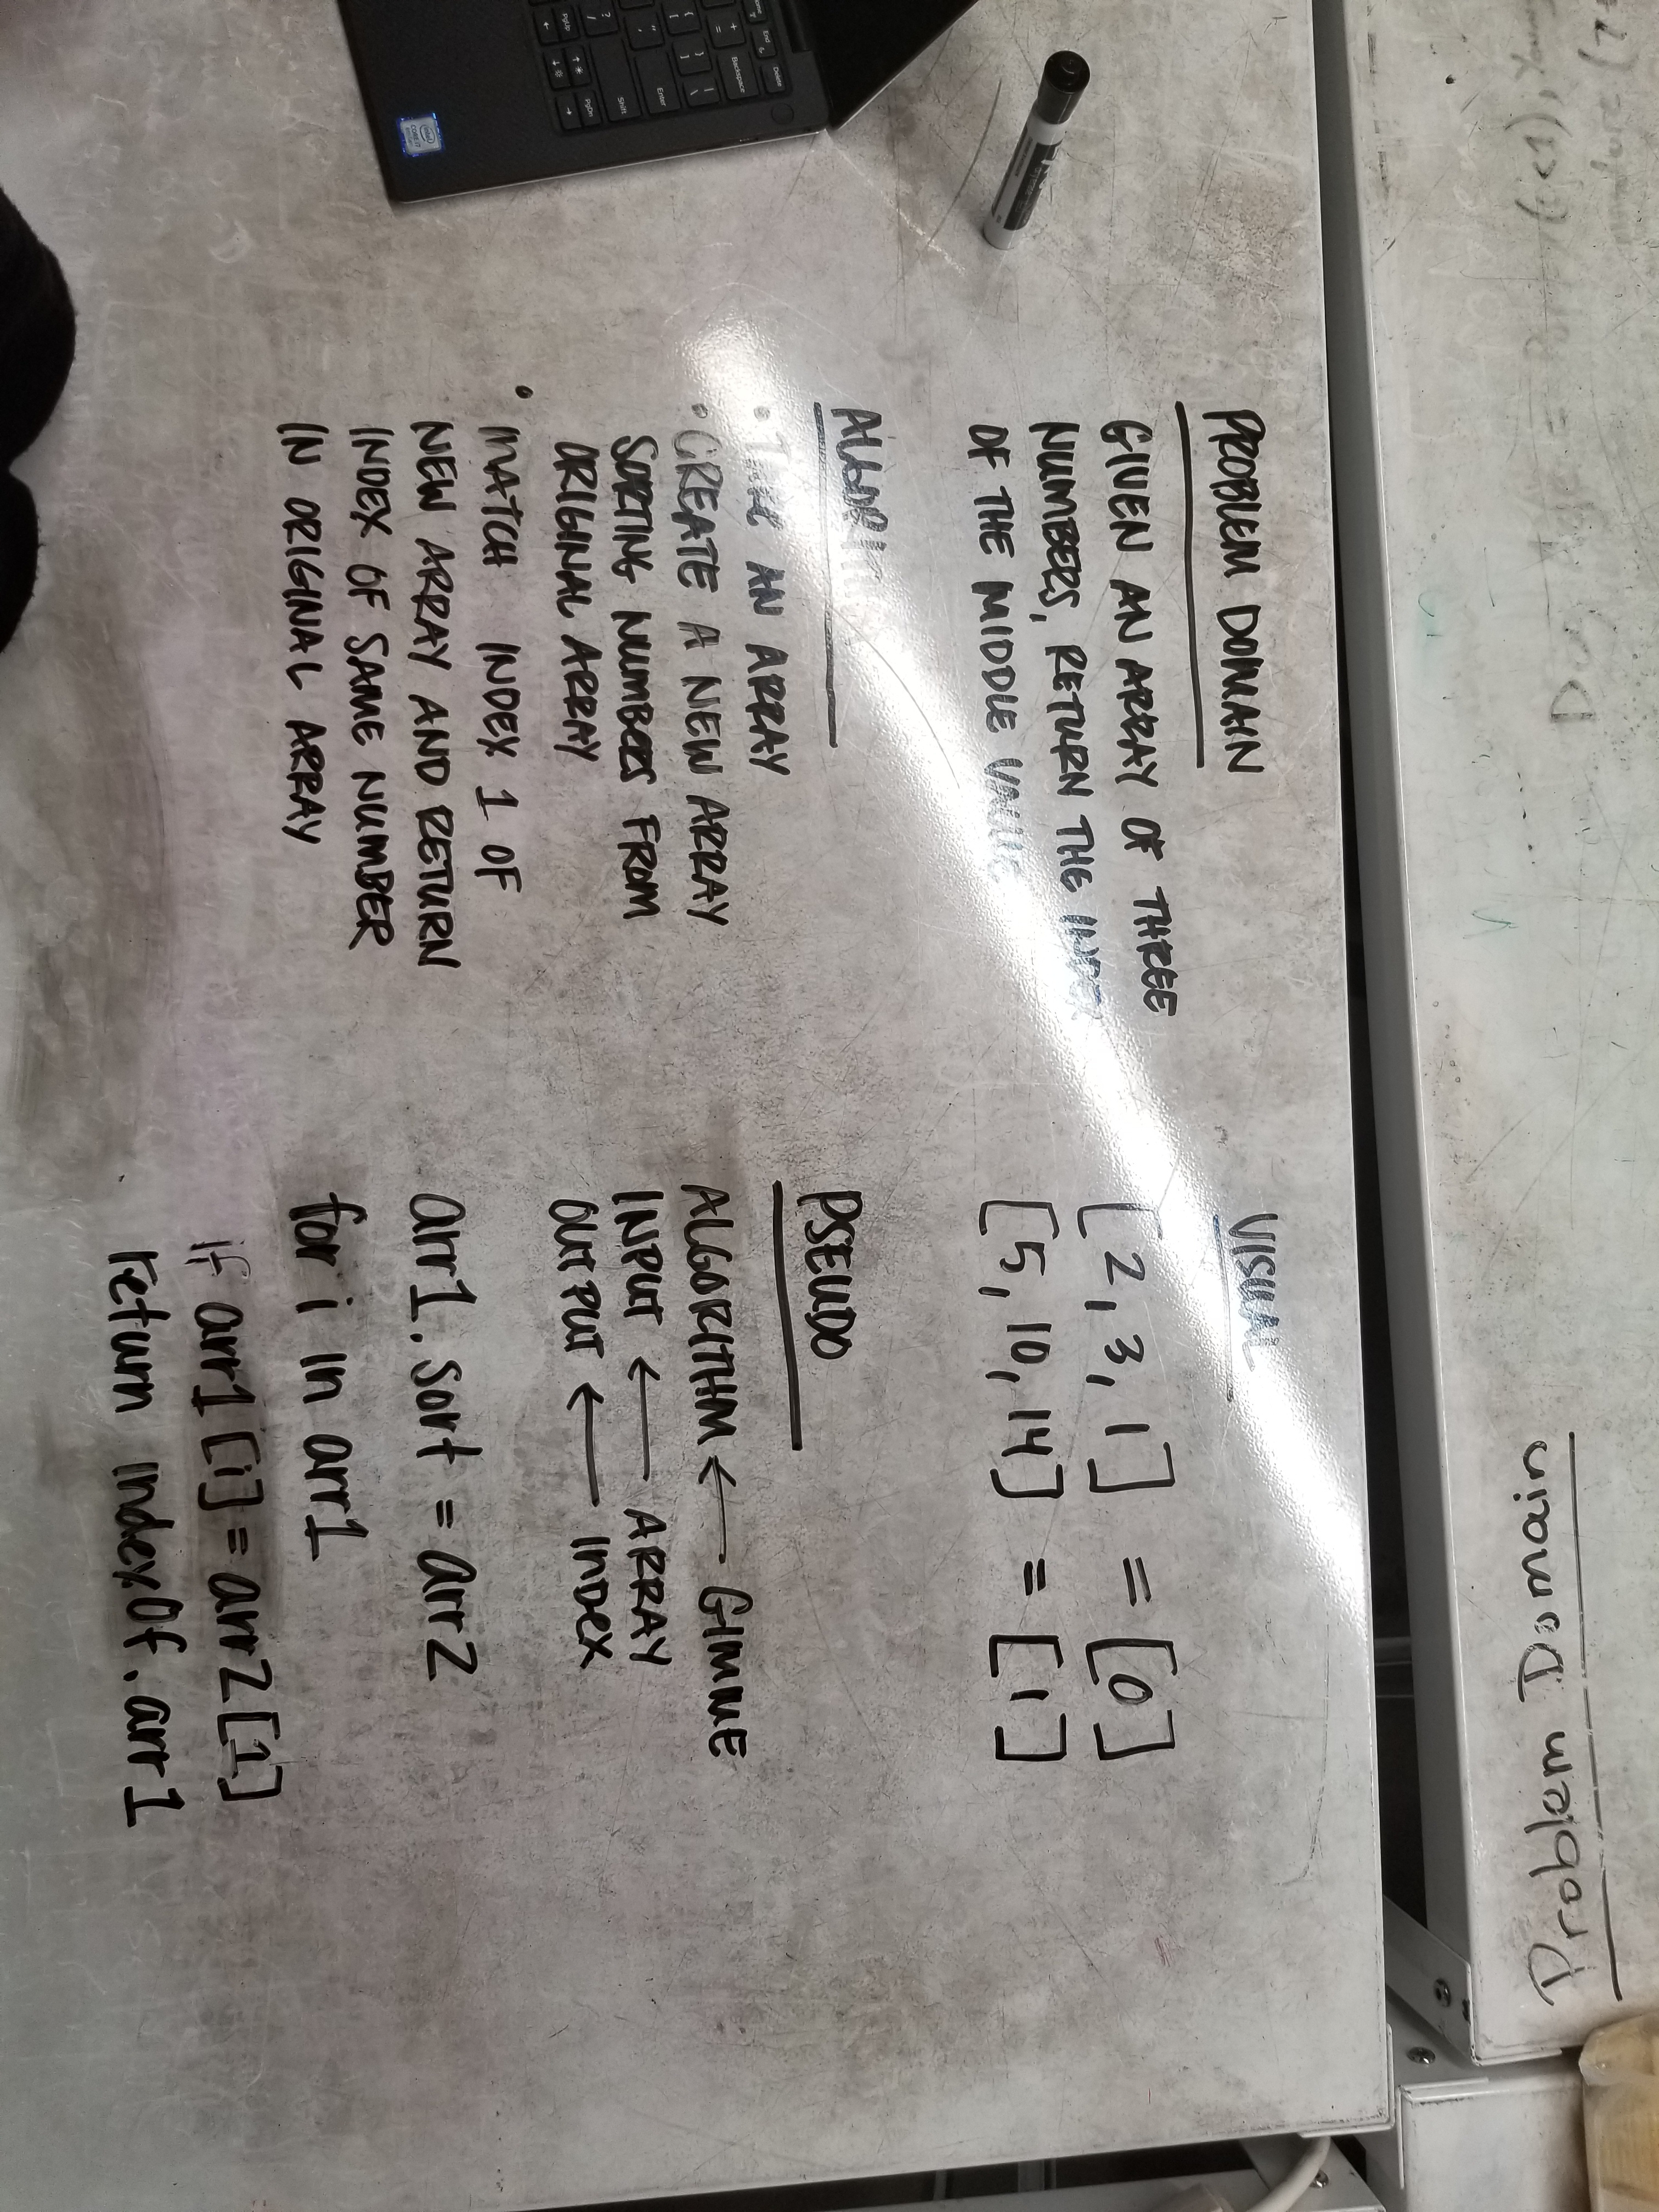 PROBLEM DOMAIN
GIVEN AN ARRAY OF THREE
NUMBERS, RETURN THE INDEX
OF THE MIDDLE VALUE
ALGORITHM
• TAKE AN ARRAY
• CREATE A NEW ARRAY
SORTING NUMBERS FROM
ORIGINAL ARRAY
• MATCH INDEX 1 OF
NEW ARRAY AND RETURN
INDEX OF SAME NUMBER
IN ORIGINAL ARRAY
VISUAL
[2, 3, 1] = [0]
[5, 10, 14] = [1]
PSEUDO
ALGORITHM ← GIMME
INPUT ← ARRAY
OUTPUT ← INDEX
arr1.sort = arr2
for i in arr1
if arr1[i] = arr2[1]
return indexOf.arr1
Problem Domain
Delete
End
Backspace
Enter
Shift
PgUp
PgDn
intel
CORE i7